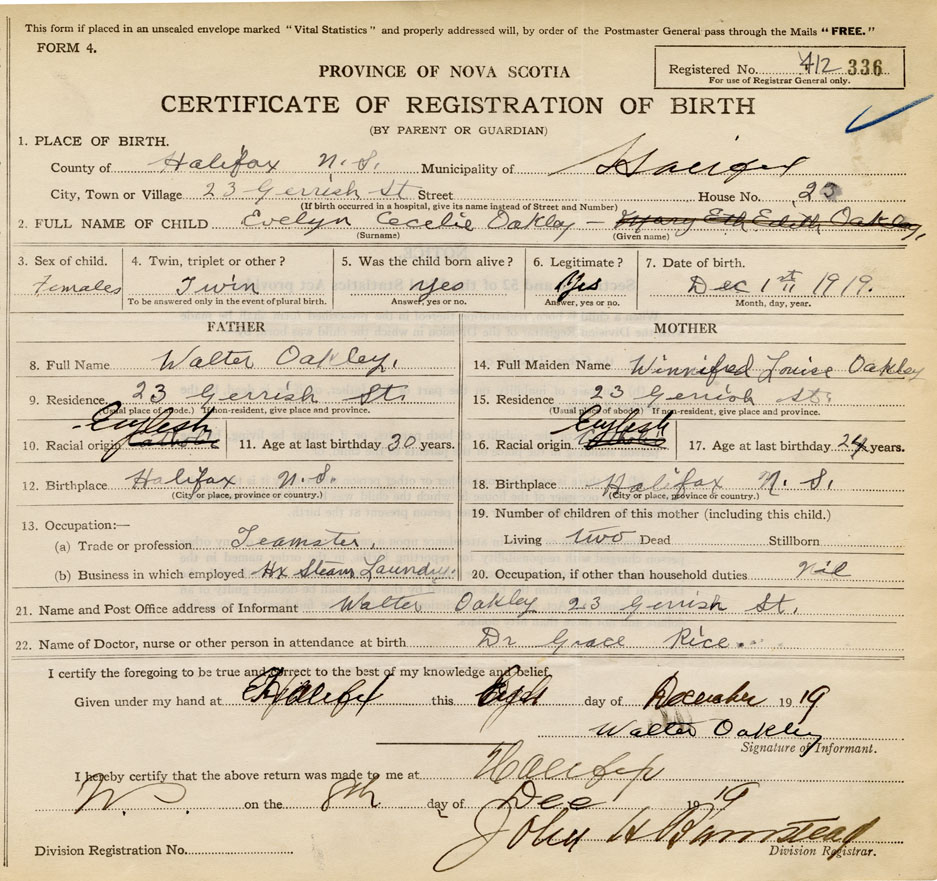 This form if placed in an unsealed envelope marked "Vital Statistics" and properly addressed will, by order of the Postmaster General pass through the Mails "FREE."
FORM 4.
Registered No. 412 336
For use of Registrar General only.
PROVINCE OF NOVA SCOTIA
CERTIFICATE OF REGISTRATION OF BIRTH
(BY PARENT OR GUARDIAN)
1. PLACE OF BIRTH.
County of Halifax N.S. Municipality of
City, Town or Village 23 Gerrish St Street House No. 23
(If birth occurred in a hospital, give its name instead of Street and Number)
2. FULL NAME OF CHILD Evelyn Cecelie Oakley – Edith Oakley,
(Surname) (Given name)
3. Sex of child. 4. Twin, triplet or other? 5. Was the child born alive? 6. Legitimate? 7. Date of birth.
Females Twin yes Yes Dec 1st 1919.
To be answered only in the event of plural birth. Answer, yes or no. Answer, yes or no. Month, day, year.
FATHER MOTHER
8. Full Name Walter Oakley. 14. Full Maiden Name Winnifred Louise Oakley
9. Residence. 23 Gerrish St. 15. Residence 23 Gerrish St.
(Usual place of abode.) If non-resident, give place and province. (Usual place of abode) If non-resident, give place and province.
English English
10. Racial origin Catholic 11. Age at last birthday 30 years. 16. Racial origin Catholic 17. Age at last birthday 24 years.
12. Birthplace Halifax N.S. 18. Birthplace Halifax N.S.
(City or place, province or country.) (City or place, province or country.)
13. Occupation:— 19. Number of children of this mother (including this child.)
(a) Trade or profession Teamster. Living two Dead Stillborn
(b) Business in which employed Hx Steam Laundry. 20. Occupation, if other than household duties nil
21. Name and Post Office address of Informant Walter Oakley 23 Gerrish St.
22. Name of Doctor, nurse or other person in attendance at birth Dr Grace Rice.
I certify the foregoing to be true and correct to the best of my knowledge and belief.
Given under my hand at Halifax this day of December 1919
Walter Oakley
Signature of Informant.
I hereby certify that the above return was made to me at Halifax
N.S. on the 8th day of Dec 1919
John H Barnstead
Division Registration No. Division Registrar.